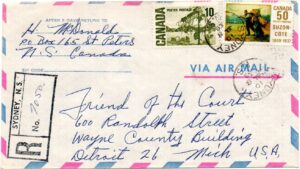 AFTER 5 DAYS RETURN TO
H McDonald
Po Box 165 St Peters
N.S. Canada
POSTES POSTAGE
CANADA
10
CANADA
50
SUZOR-COTÉ
SYDNEY
VIA AIR MAIL
SYDNEY, N.S.
R
No.
Friend of the Court
600 Randolph Street
Wayne County Building
Detroit 26 Mich U.S.A.